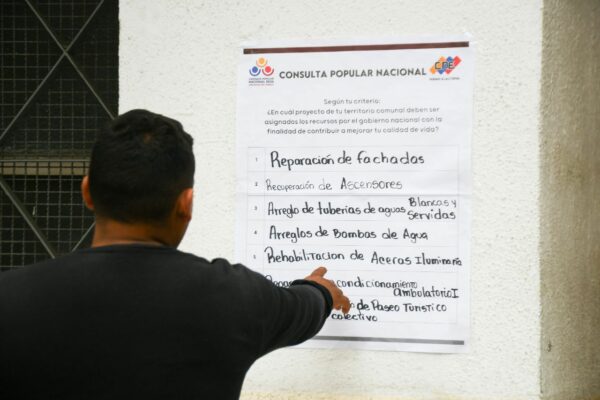 CONSULTA POPULAR NACIONAL
CNE
Según tu criterio:
¿En cuál proyecto de tu territorio comunal deben ser
asignados los recursos por el gobierno nacional con la
finalidad de contribuir a mejorar tu calidad de vida?
1 Reparación de fachadas
2 Recuperación de Ascensores
3 Arreglo de tuberias de aguas Blancas y
Servidas
4 Arreglos de Bombas de Agua
5 Rehabilitacion de Aceras Iluminaría
condicionamiento
ambulatorio I
de Paseo Turístico
colectivo